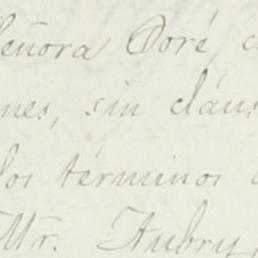 Señora Doré
nes, sin
los términos
Mr. Aubry,